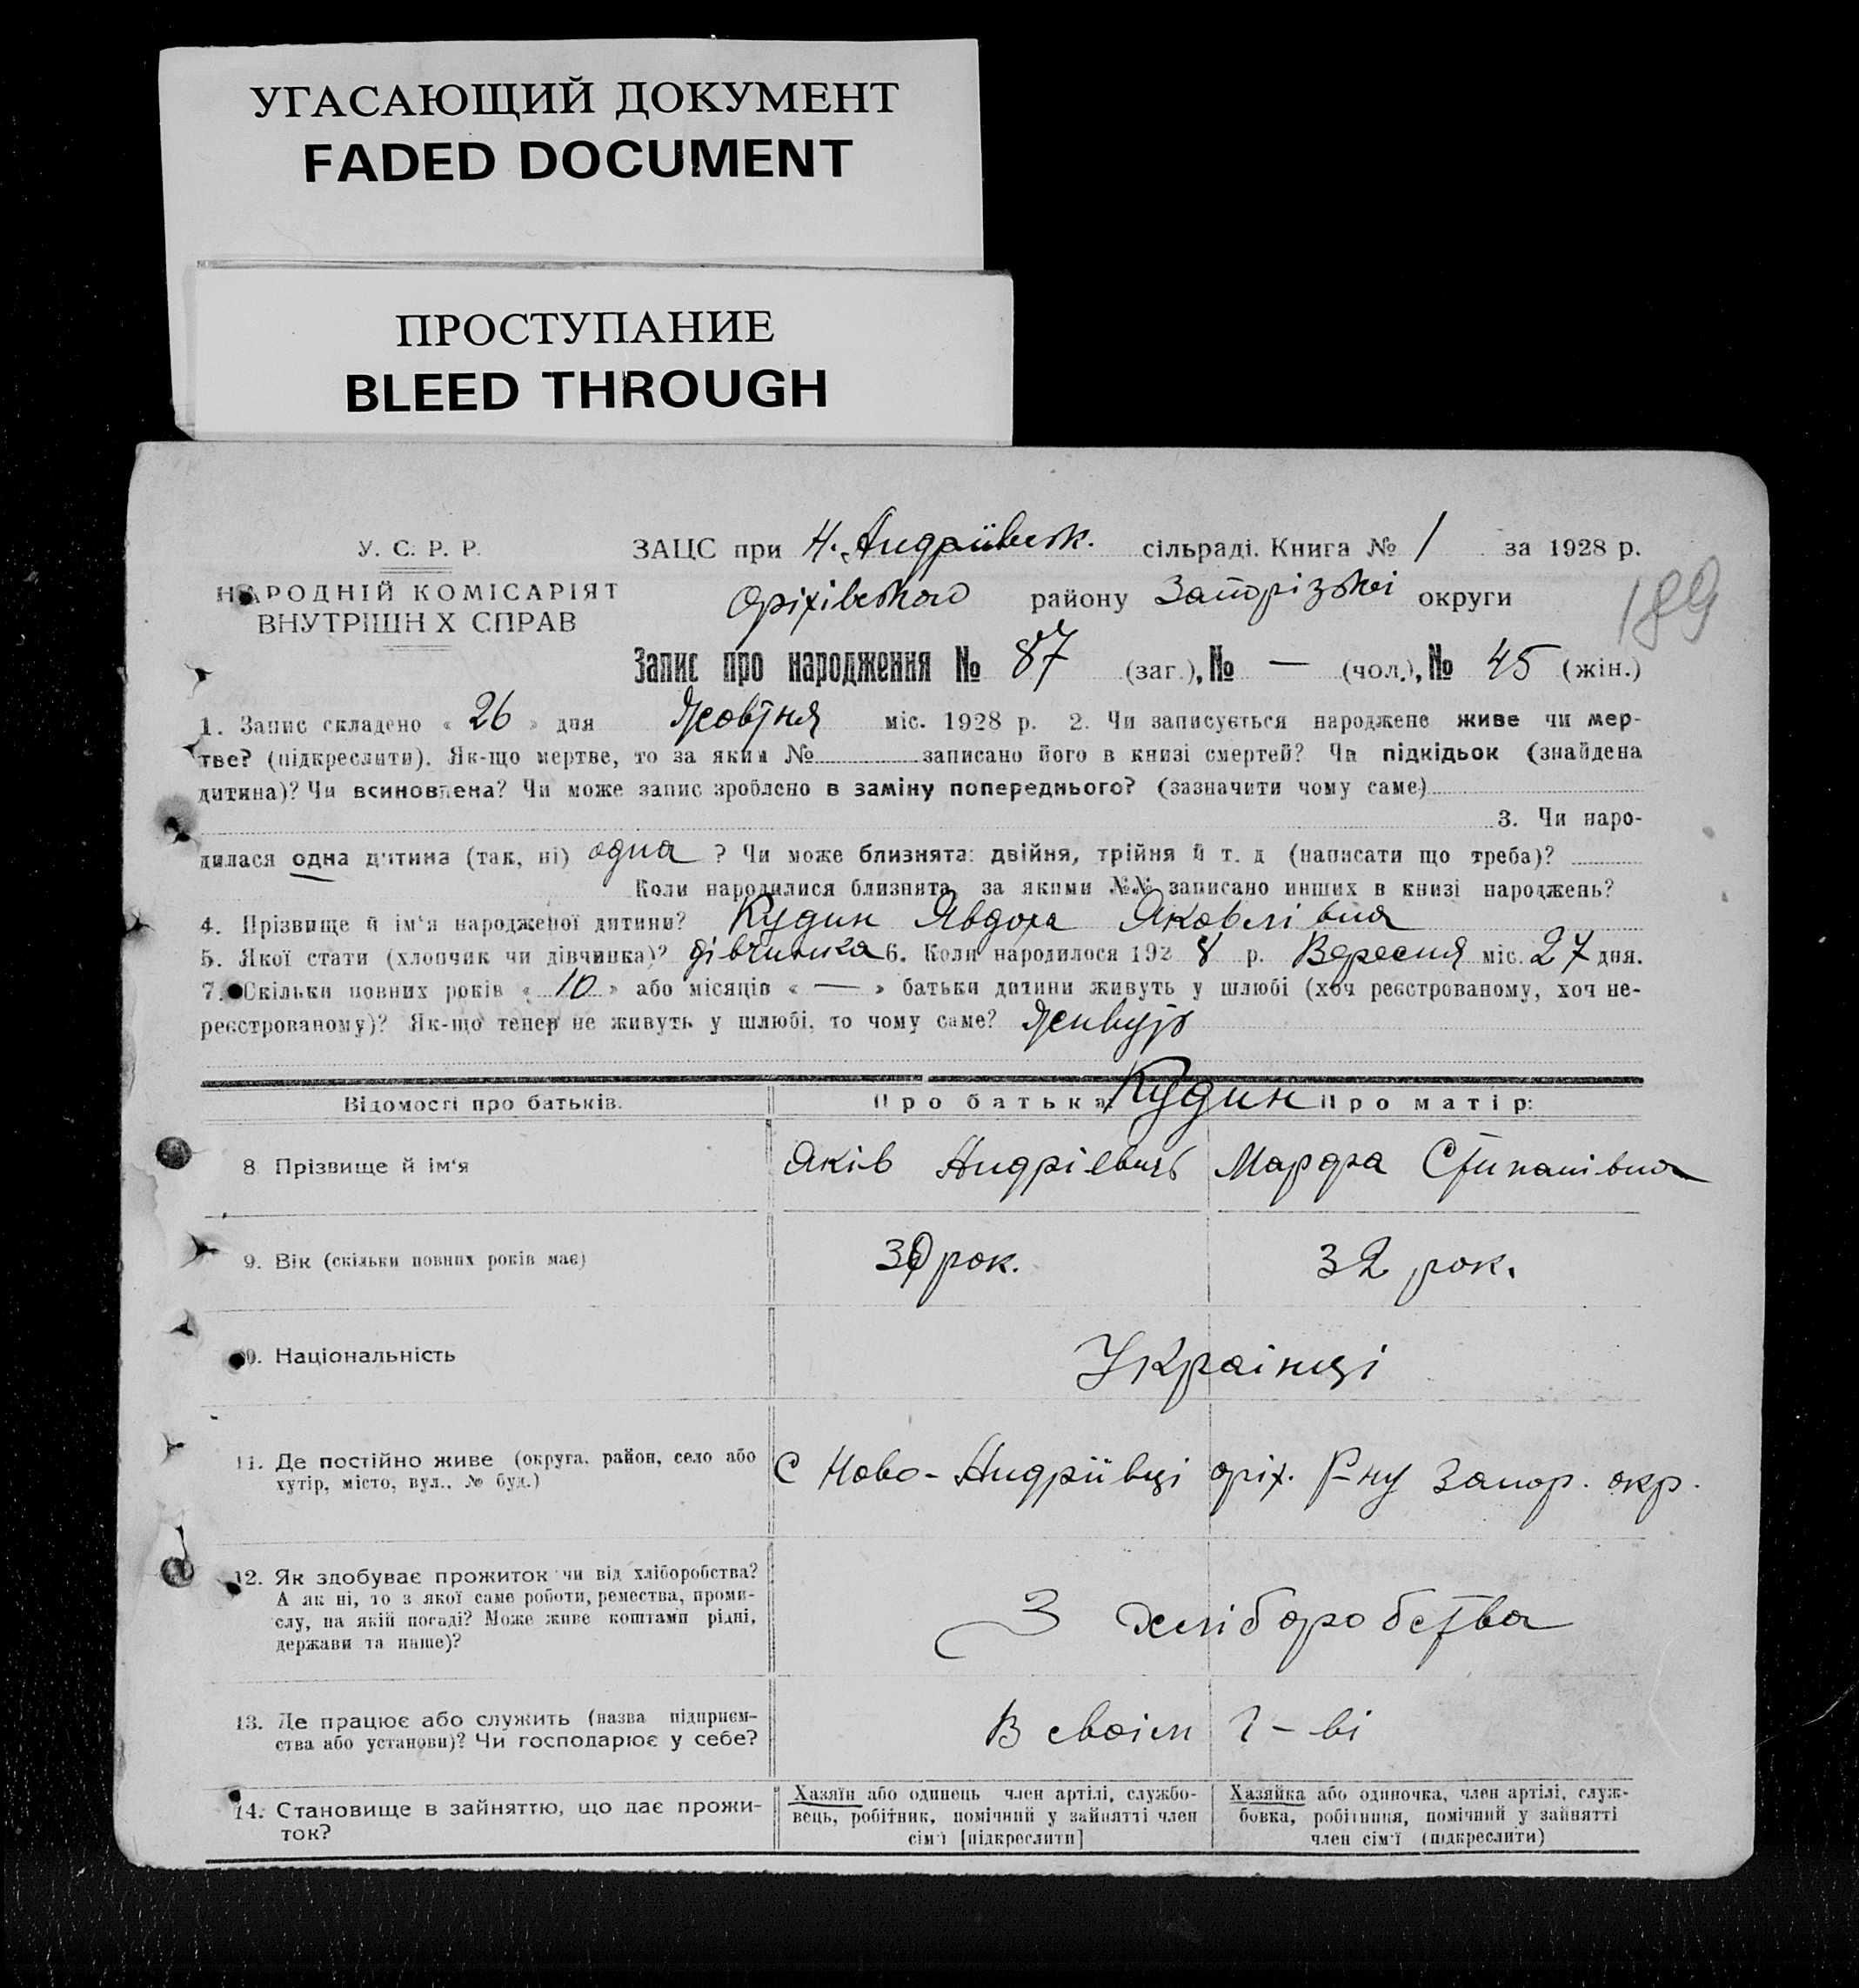 УГАСАЮЩИЙ ДОКУМЕНТ
FADED DOCUMENT
ПРОСТУПАНИЕ
BLEED THROUGH
У. С. Р. Р.
НАРОДНІЙ КОМІСАРІЯТ
ВНУТРІШН Х СПРАВ
ЗАЦС при Н. Андріївськ. сільраді. Книга № 1 за 1928 р.
Оріхівського району Запорізької округи
189
Запис про народження № 87 (заг.), № — (чол.), № 45 (жін.)
1. Запис складено « 26 » дня Жовтня міс. 1928 р. 2. Чи записується народжене живе чи мер-
тве? (підкреслити). Як-що мертве, то за яким № записано його в книзі смертей? Чи підкідьок (знайдена
дитина)? Чи всиновлена? Чи може запис зроблено в заміну попереднього? (зазначити чому саме)
3. Чи наро-
дилася одна дитина (так, ні) одна ? Чи може близнята: двійня, трійня й т. д (написати що треба)?
Коли народилися близнята за якими №№ записано инших в книзі народжень?
4. Прізвище й ім'я народженої дитини? Кудин Явдоха Яковлівна
5. Якої стати (хлопчик чи дівчинка)? дівчинка 6. Коли народилося 192 8 р. Вересня міс. 27 дня.
7. Скільки повних років « 10 » або місяців « — » батьки дитини живуть у шлюбі (хоч реєстрованому, хоч не-
реєстрованому)? Як-що тепер не живуть у шлюбі, то чому саме? Живуть
Відомості про батьків. Про батька: Кудин Про матір:
8 Прізвище й ім'я Яків Андрієвич Марфа Стипанівна
9. Вік (скільки повних років має) рок. 32 рок.
Національність Українці
11. Де постійно живе (округа, район, село або С Ново-Андріївці Оріх. Р-ну Запор. окр.
хутір, місто, вул., № буд.)
12. Як здобуває прожиток чи від хліборобства?
А як ні, то з якої саме роботи, ремества, проми-
слу, на якій посаді? Може живе коштами рідні,
держави та инше)?
З хліборобства
13. Де працює або служить (назва підприєм-
ства або установи)? Чи господарює у себе?
В своїм г-ві
14. Становище в зайняттю, що дає прожи-
ток?
Хазяїн або одинець член артілі, службо-
вець, робітник, помічний у зайнятті член
сім'ї [підкреслити]
Хазяйка або одиночка, член артілі, служ-
бовка, робітниця, помічний у зайнятті
член сім'ї (підкреслити)